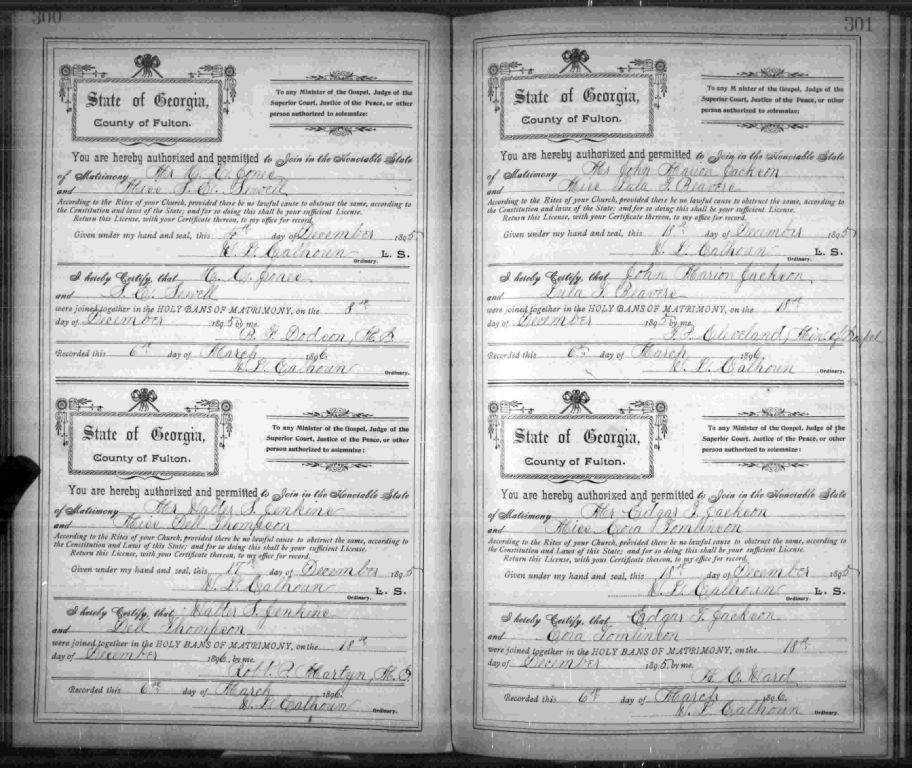 300
State of Georgia,
County of Fulton.
To any Minister of the Gospel, Judge of the
Superior Court, Justice of the Peace, or other
person authorized to solemnize:
You are hereby authorized and permitted to Join in the Honorable State
of Matrimony Mr C. C. Jones
and Miss S. E. Sewell
According to the Rites of your Church, provided there be no lawful cause to obstruct the same, according to
the Constitution and laws of the State; and for so doing this shall be your sufficient License.
Return this License, with your Certificate thereon, to my office for record.
Given under my hand and seal, this day of December 1895
W. L. Calhoun L. S.
Ordinary.
I hereby Certify, that C. C. Jones
and S. E. Sewell
were joined together in the HOLY BANS OF MATRIMONY, on the 8th
day of December 1895 by me.
Dodson, M. G.
Recorded this 6th day of March 1896
W. L. Calhoun
Ordinary.
State of Georgia,
County of Fulton.
To any Minister of the Gospel, Judge of the
Superior Court, Justice of the Peace, or other
person authorized to solemnize:
You are hereby authorized and permitted to Join in the Honorable State
of Matrimony Mr Walter S. Jenkins
and Miss Dell Thompson
According to the Rites of your Church, provided there be no lawful cause to obstruct the same, according to
the Constitution and Laws of this State; and for so doing this shall be your sufficient License.
Return this License, with your Certificate thereon, to my office for record.
Given under my hand and seal, this day of December 1895
W. L. Calhoun L. S.
Ordinary.
I hereby Certify, that Walter S. Jenkins
and Dell Thompson
were joined together in the HOLY BANS OF MATRIMONY, on the 18th
day of December 1895, by me.
Robt. P. Martyn, M. G.
Recorded this 6th day of March 1896.
W. L. Calhoun
Ordinary.
301
State of Georgia,
County of Fulton.
To any Minister of the Gospel, Judge of the
Superior Court, Justice of the Peace, or other
person authorized to solemnize:
You are hereby authorized and permitted to Join in the Honorable State
of Matrimony Mr John Marion Jackson
and Miss Lula J. Beavers
According to the Rites of your Church, provided there be no lawful cause to obstruct the same, according to
the Constitution and laws of the State; and for so doing this shall be your sufficient License.
Return this License, with your Certificate thereon, to my office for record.
Given under my hand and seal, this 18th day of December 1895
W. L. Calhoun L. S.
Ordinary.
I hereby Certify, that John Marion Jackson
and Lula J. Beavers
were joined together in the HOLY BANS OF MATRIMONY, on the 18th
day of December 1895 by me.
Cleveland, Min. of Gospel
Recorded this 6th day of March 1896
W. L. Calhoun
Ordinary.
State of Georgia,
County of Fulton.
To any Minister of the Gospel, Judge of the
Superior Court, Justice of the Peace, or other
person authorized to solemnize:
You are hereby authorized and permitted to Join in the Honorable State
of Matrimony Mr Edgar F. Jackson
and Miss Cora Tomlinson
According to the Rites of your Church, provided there be no lawful cause to obstruct the same, according to
the Constitution and Laws of this State; and for so doing this shall be your sufficient License.
Return this License, with your Certificate thereon, to my office for record.
Given under my hand and seal, this 18th day of December 1895
W. L. Calhoun L. S.
Ordinary.
I hereby Certify, that Edgar F. Jackson
and Cora Tomlinson
were joined together in the HOLY BANS OF MATRIMONY, on the 18th
day of December 1895, by me.
Ward
Recorded this 6th day of March 1896.
W. L. Calhoun
Ordinary.